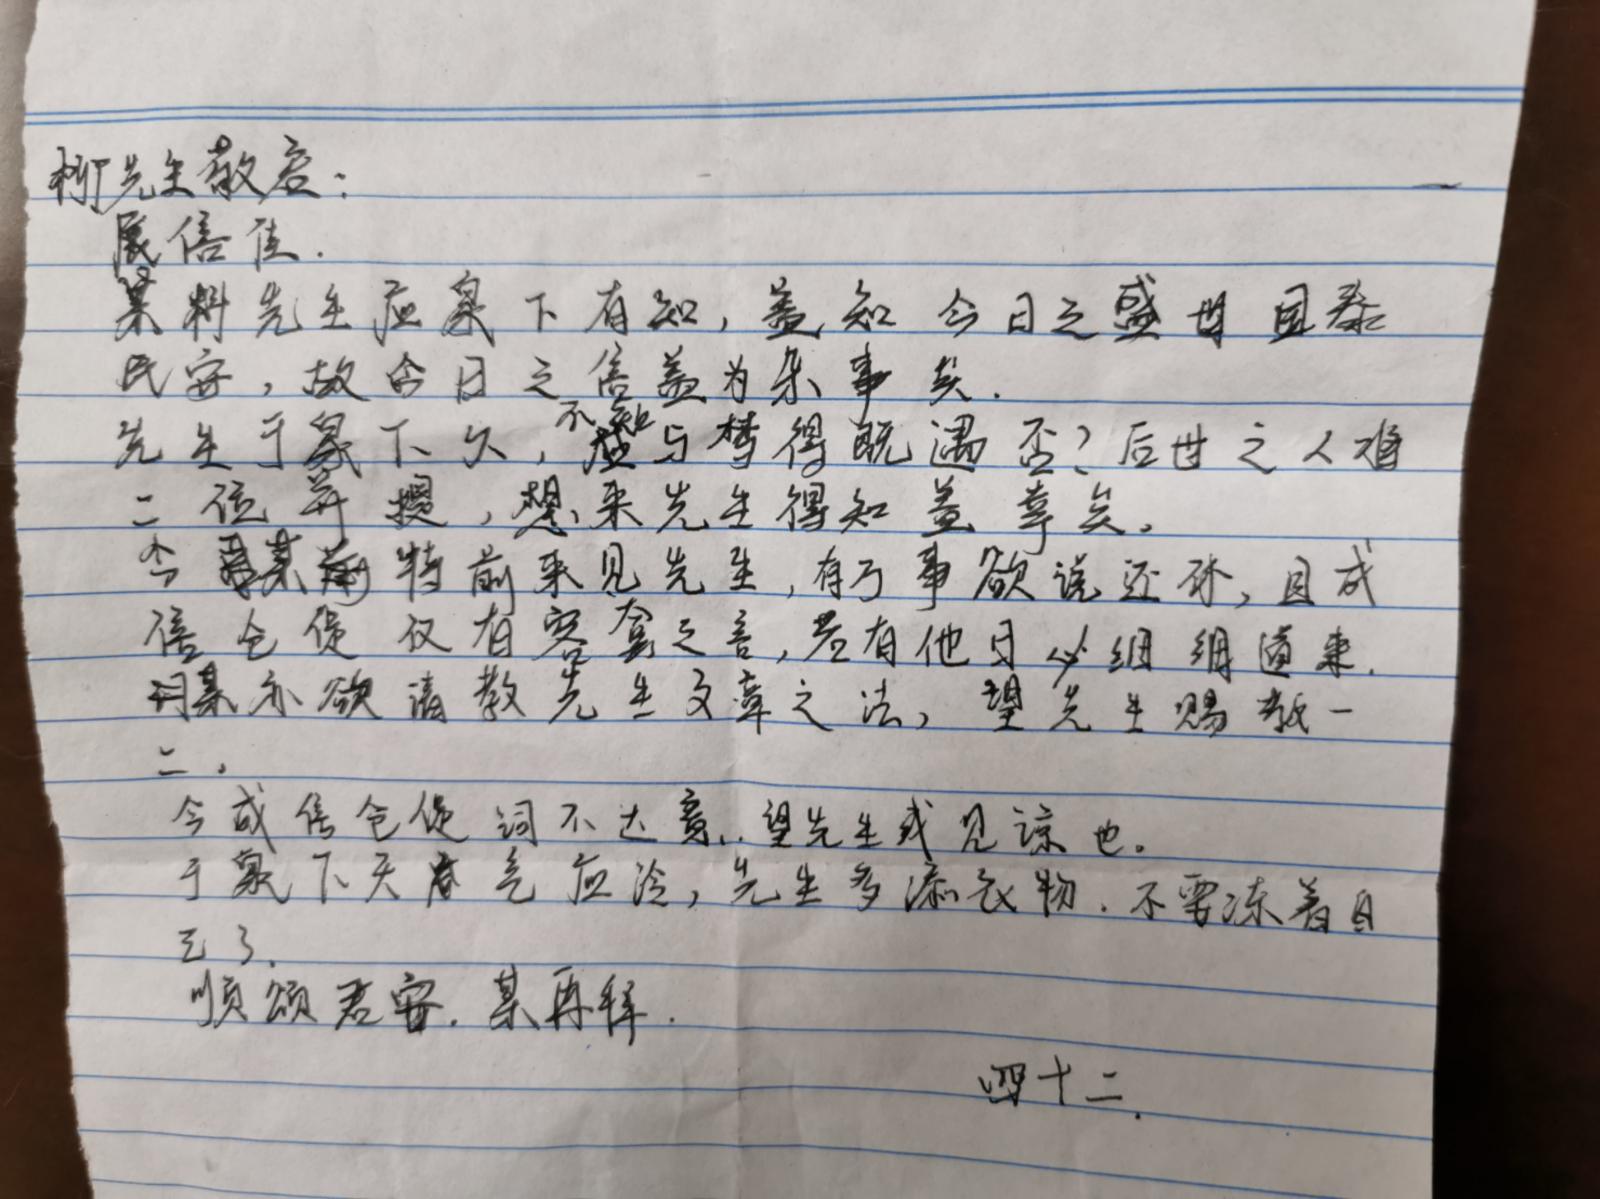 柳先生敬启：
展信佳.
某料先生应泉下有知，盖知今日之盛世国泰
民安，故今日之信盖为杂事矣.
先生于泉下久，不知与梦得既遇否？后世之人难
二位并提，想来先生得知盖幸矣。
今某特前来见先生，有了事欲说还休，且成
信仓促仅有客套之言，若有他日必细细道来.
某亦欲请教先生文章之法，望先生赐教一
二.
今成信仓促词不达意，望先生或见谅也。
于泉下天气应冷，先生多添衣物.不要冻着自
己了.
顺颂君安.某再拜.
四十二.